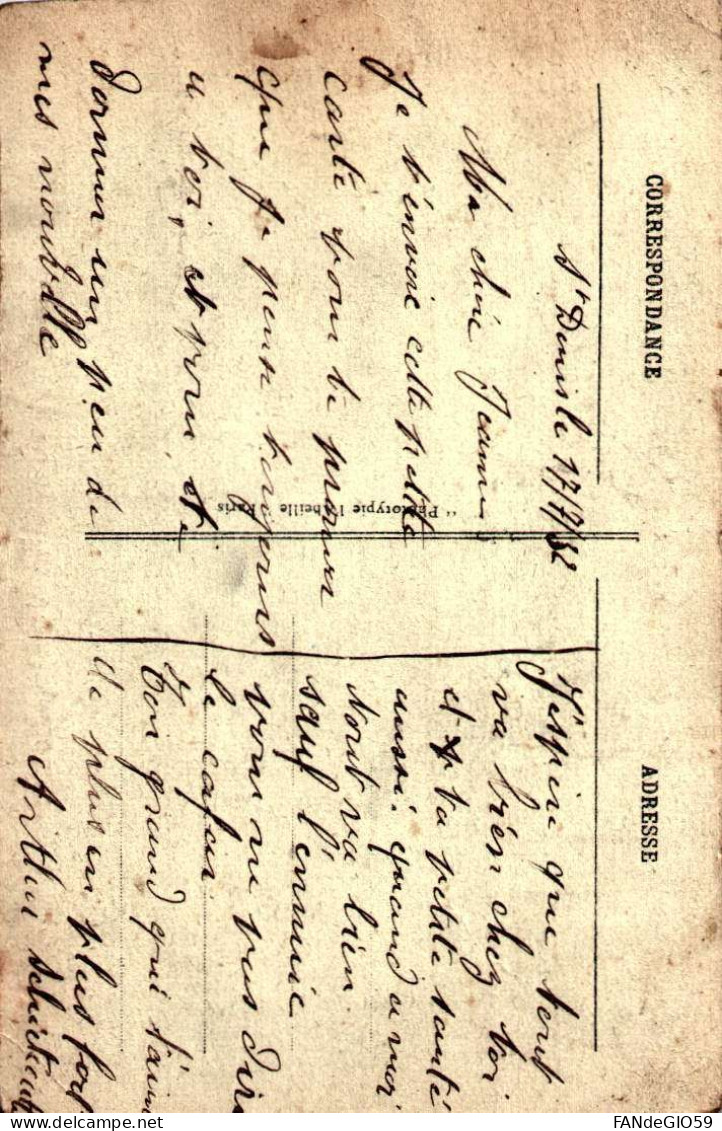 CORRESPONDANCE
St Denis le 17/9/32
Ma chère Jeanne
Je t'envoie cette petite
carte pour te prouver
que je pense toujours
a toi, et pour te
donner un peu de
mes nouvelle
"Phototypie l'Abeille Paris
ADRESSE
J'espère que tout
va bien chez toi
et ta petite santé
aussi, quand a moi
tout va bien.
sauf l'ennuie
pour ne pas dire
le cafar.
Ton grand qui t'aime
de plus en plus fort
Arthur
FANdeGIO59
Delcampe.net